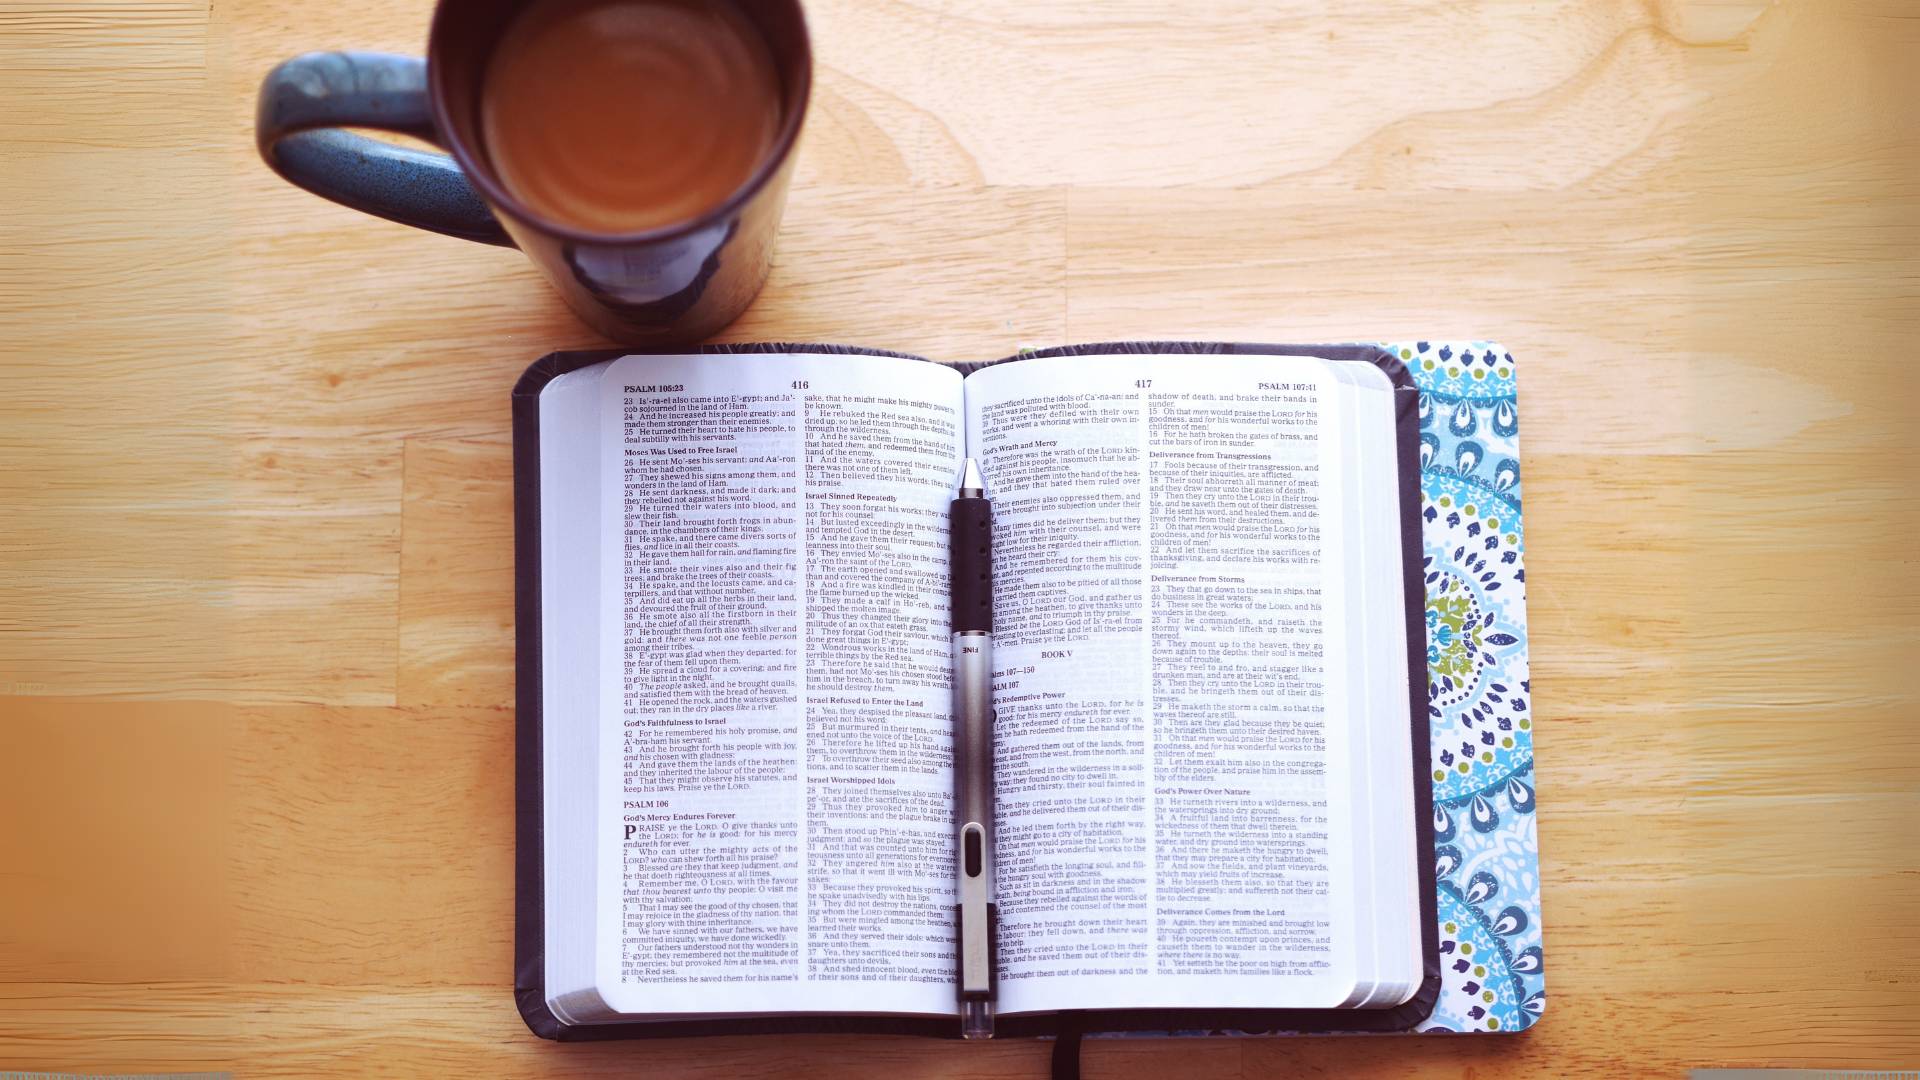 PSALM 105:23
416
23 Is'-ra-el also came into E'-gypt; and Ja'-
cob sojourned in the land of Ham.
24 And he increased his people greatly; and
made them stronger than their enemies.
25 He turned their heart to hate his people, to
deal subtilly with his servants.
Moses Was Used to Free Israel
26 He sent Mo'-ses his servant; and Aa'-ron
whom he had chosen.
27 They shewed his signs among them, and
wonders in the land of Ham.
28 He sent darkness, and made it dark; and
they rebelled not against his word.
29 He turned their waters into blood, and
slew their fish.
30 Their land brought forth frogs in abun-
dance, in the chambers of their kings.
31 He spake, and there came divers sorts of
flies, and lice in all their coasts.
32 He gave them hail for rain, and flaming fire
in their land.
33 He smote their vines also and their fig
trees; and brake the trees of their coasts.
34 He spake, and the locusts came, and ca-
terpillers, and that without number,
35 And did eat up all the herbs in their land,
and devoured the fruit of their ground.
36 He smote also all the firstborn in their
land, the chief of all their strength.
37 He brought them forth also with silver and
gold: and there was not one feeble person
among their tribes.
38 E'-gypt was glad when they departed: for
the fear of them fell upon them.
39 He spread a cloud for a covering; and fire
to give light in the night.
40 The people asked, and he brought quails,
and satisfied them with the bread of heaven.
41 He opened the rock, and the waters gushed
out; they ran in the dry places like a river.
God's Faithfulness to Israel
42 For he remembered his holy promise, and
A'-bra-ham his servant.
43 And he brought forth his people with joy,
and his chosen with gladness:
44 And gave them the lands of the heathen:
and they inherited the labour of the people;
45 That they might observe his statutes, and
keep his laws. Praise ye the LORD.
PSALM 106
God's Mercy Endures Forever
PRAISE ye the LORD. O give thanks unto
the LORD; for he is good: for his mercy
endureth for ever.
2 Who can utter the mighty acts of the
LORD? who can shew forth all his praise?
3 Blessed are they that keep judgment, and
he that doeth righteousness at all times.
4 Remember me, O LORD, with the favour
that thou bearest unto thy people: O visit me
with thy salvation;
5 That I may see the good of thy chosen, that
I may rejoice in the gladness of thy nation, that
I may glory with thine inheritance.
6 We have sinned with our fathers, we have
committed iniquity, we have done wickedly.
7 Our fathers understood not thy wonders in
E'-gypt; they remembered not the multitude of
thy mercies; but provoked him at the sea, even
at the Red sea.
8 Nevertheless he saved them for his name's
sake, that he might make his mighty power to
be known.
9 He rebuked the Red sea also, and it was
dried up: so he led them through the depths, as
through the wilderness.
10 And he saved them from the hand of him
that hated them, and redeemed them from the
hand of the enemy.
11 And the waters covered their enemies:
there was not one of them left.
12 Then believed they his words; they sang
his praise.
Israel Sinned Repeatedly
13 They soon forgat his works; they
not for his counsel:
14 But lusted exceedingly in the
and tempted God in the desert.
15 And he gave them their request; but
leanness into their soul.
16 They envied Mo'-ses also in the camp,
Aa'-ron the saint of the LORD.
17 The earth opened and swallowed up
than and covered the company of
18 And a fire was kindled in their
the flame burned up the wicked.
19 They made a calf in Ho'-reb, and
shipped the molten image.
20 Thus they changed their glory into the
militude of an ox that eateth grass.
21 They forgat God their saviour, which
done great things in E'-gypt;
22 Wondrous works in the land of Ham,
terrible things by the Red sea.
23 Therefore he said that he would
them, had not Mo'-ses his chosen stood
him in the breach, to turn away his wrath,
he should destroy them.
Israel Refused to Enter the Land
24 Yea, they despised the pleasant land,
believed not his word:
25 But murmured in their tents, and
ened not unto the voice of the LORD.
26 Therefore he lifted up his hand
them, to overthrow them in the wilderness:
27 To overthrow their seed also among the
tions, and to scatter them in the lands.
Israel Worshipped Idols
28 They joined themselves also unto
pe'-or, and ate the sacrifices of the dead.
29 Thus they provoked him to anger
their inventions: and the plague brake in
them.
30 Then stood up Phin'-e-has, and
judgment: and so the plague was stayed.
31 And that was counted unto him for
teousness unto all generations for
32 They angered him also at the
strife, so that it went ill with Mo'-ses for
sakes:
33 Because they provoked his spirit, so
he spake unadvisedly with his lips.
34 They did not destroy the nations,
ing whom the LORD commanded them:
35 But were mingled among the heathen,
learned their works.
36 And they served their idols: which
snare unto them.
37 Yea, they sacrificed their sons and
daughters unto devils,
38 And shed innocent blood, even the
of their sons and of their daughters,
417
PSALM 107:41
they sacrificed unto the idols of Ca'-na-an: and
the land was polluted with blood.
39 Thus were they defiled with their own
works, and went a whoring with their own in-
ventions.
God's Wrath and Mercy
40 Therefore was the wrath of the LORD kin-
dled against his people, insomuch that he ab-
his own inheritance.
And he gave them into the hand of the hea-
and they that hated them ruled over
Their enemies also oppressed them, and
were brought into subjection under their
Many times did he deliver them; but they
him with their counsel, and were
low for their iniquity.
Nevertheless he regarded their affliction,
he heard their cry:
And he remembered for them his cov-
and repented according to the multitude
mercies.
He made them also to be pitied of all those
carried them captives.
Save us, O LORD our God, and gather us
among the heathen, to give thanks unto
holy name, and to triumph in thy praise.
Blessed be the LORD God of Is'-ra-el from
to everlasting: and let all the people
A'-men. Praise ye the LORD.
BOOK V
107—150
107
Redemptive Power
GIVE thanks unto the LORD, for he is
good: for his mercy endureth for ever.
Let the redeemed of the LORD say so,
he hath redeemed from the hand of the
And gathered them out of the lands, from
east, and from the west, from the north, and
the south.
They wandered in the wilderness in a soli-
way; they found no city to dwell in.
Hungry and thirsty, their soul fainted in
Then they cried unto the LORD in their
and he delivered them out of their dis-
And he led them forth by the right way,
they might go to a city of habitation.
Oh that men would praise the LORD for his
and for his wonderful works to the
of men!
For he satisfieth the longing soul, and fill-
the hungry soul with goodness.
Such as sit in darkness and in the shadow
death, being bound in affliction and iron;
Because they rebelled against the words of
and contemned the counsel of the most
Therefore he brought down their heart
labour; they fell down, and there was
to help.
Then they cried unto the LORD in their
and he saved them out of their dis-
He brought them out of darkness and the
shadow of death, and brake their bands in
sunder.
15 Oh that men would praise the LORD for his
goodness, and for his wonderful works to the
children of men!
16 For he hath broken the gates of brass, and
cut the bars of iron in sunder.
Deliverance from Transgressions
17 Fools because of their transgression, and
because of their iniquities, are afflicted.
18 Their soul abhorreth all manner of meat;
and they draw near unto the gates of death.
19 Then they cry unto the LORD in their trou-
ble, and he saveth them out of their distresses.
20 He sent his word, and healed them, and de-
livered them from their destructions.
21 Oh that men would praise the LORD for his
goodness, and for his wonderful works to the
children of men!
22 And let them sacrifice the sacrifices of
thanksgiving, and declare his works with re-
joicing.
Deliverance from Storms
23 They that go down to the sea in ships, that
do business in great waters;
24 These see the works of the LORD, and his
wonders in the deep.
25 For he commandeth, and raiseth the
stormy wind, which lifteth up the waves
thereof.
26 They mount up to the heaven, they go
down again to the depths: their soul is melted
because of trouble.
27 They reel to and fro, and stagger like a
drunken man, and are at their wit's end.
28 Then they cry unto the LORD in their trou-
ble, and he bringeth them out of their dis-
tresses.
29 He maketh the storm a calm, so that the
waves thereof are still.
30 Then are they glad because they be quiet;
so he bringeth them unto their desired haven.
31 Oh that men would praise the LORD for his
goodness, and for his wonderful works to the
children of men!
32 Let them exalt him also in the congrega-
tion of the people, and praise him in the assem-
bly of the elders.
God's Power Over Nature
33 He turneth rivers into a wilderness, and
the watersprings into dry ground;
34 A fruitful land into barrenness, for the
wickedness of them that dwell therein.
35 He turneth the wilderness into a standing
water, and dry ground into watersprings.
36 And there he maketh the hungry to dwell,
that they may prepare a city for habitation;
37 And sow the fields, and plant vineyards,
which may yield fruits of increase.
38 He blesseth them also, so that they are
multiplied greatly; and suffereth not their cat-
tle to decrease.
Deliverance Comes from the Lord
39 Again, they are minished and brought low
through oppression, affliction, and sorrow.
40 He poureth contempt upon princes, and
causeth them to wander in the wilderness,
where there is no way.
41 Yet setteth he the poor on high from afflic-
tion, and maketh him families like a flock.
FINE